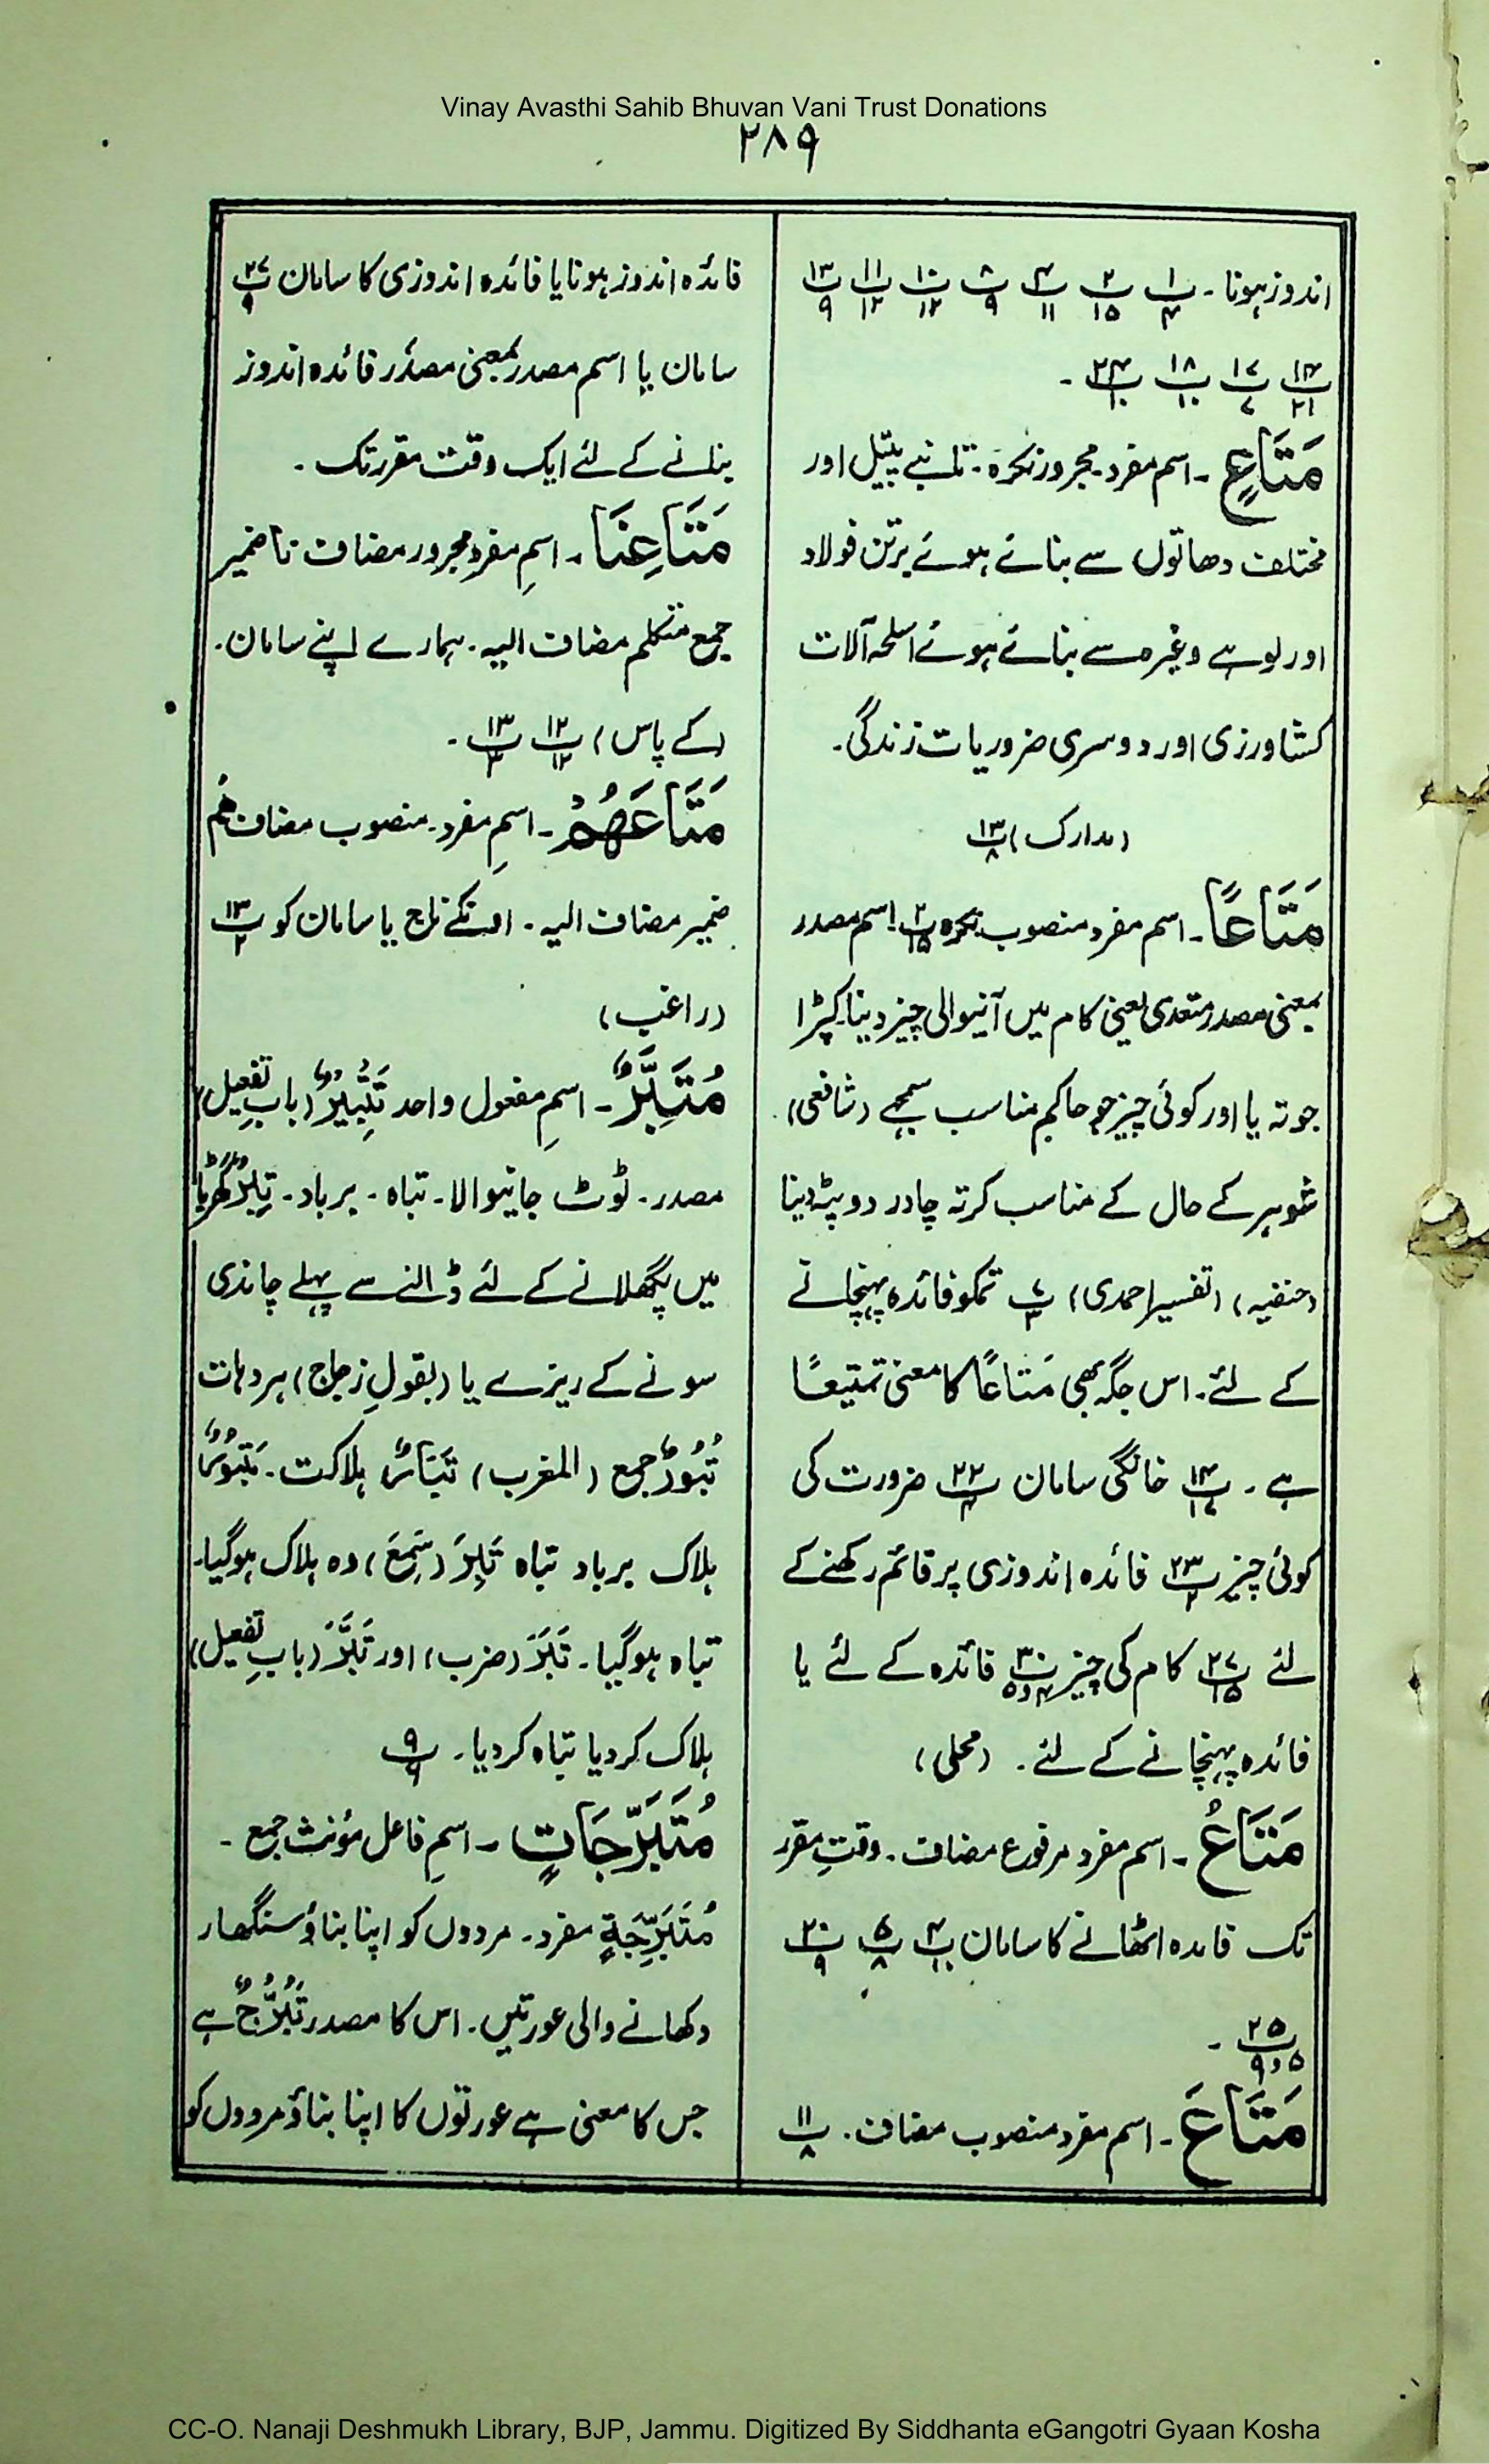 Vinay Avasthi Sahib Bhuvan Vani Trust Donations
۲۸۹
اندوز ہونا۔ پ۱/۴ پ۲/۱۵ پ۴/۱۱ پ۸/۹ پ۱۰/۱۲ پ۱۱/۱۲ پ۱۳/۹
پ۱۴/۲۱ پ۱۷/۷ پ۱۸/۱۰ پ۲۴/۱۰ ۔
مَتَاعٍ ۔ اسم مفرد۔ مجرور نکرہ۔ تانبے پیتل اور
مختلف دھاتوں سے بنائے ہوئے برتن فولاد
اور لوہے وغیرہ سے بنائے ہوئے اسلحہ آلات
کشاورزی اور دوسری ضروریات زندگی۔
(مدارک) پ۱۳/۸
مَتَاعًا۔ اسم مفرد منصوب نکرہ پ۲/۱۵ اسم مصدر
بمعنی مصدر متعدی یعنی کام میں آنیوالی چیز دینا۔ کپڑا
جوتہ یا اور کوئی چیز جو حاکم مناسب سمجھے (شافعی)
شوہر کے حال کے مناسب کرتہ چادر دوپٹہ دینا
(حنفیہ) (تفسیر احمدی) پ۷/۳ تمکو فائدہ پہنچانے
کے لئے۔ اس جگہ بھی مَتاعًا کا معنی تمتیعًا
ہے۔ پ۱۴/۱۷ خانگی سامان پ۲۲/۴ ضرورت کی
کوئی چیز پ۲۳/۲ فائدہ اندوزی پر قائم رکھنے کے
لئے پ۲۷/۱۵ کام کی چیز پ۳۰/۴و۵ فائدہ کے لئے یا
فائدہ پہنچانے کے لئے۔ (محلی)
مَتَاعُ ۔ اسم مفرد مرفوع مضاف۔ وقتِ مقرر
تک فائدہ اٹھانے کا سامان پ۴/۱۰ پ۵/۸ پ۲۰/۹
پ۲۵/۵و۹ ۔
مَتَاعَ ۔ اسم مفرد منصوب مضاف۔ پ۱۱/۸
فائدہ اندوز ہونا یا فائدہ اندوزی کا سامان پ۲۷/۹
سامان یا اسم مصدر بمعنی مصدر فائدہ اندوز
بنانے کے لئے ایک وقت مقرر تک۔
مَتَاعِنَا ۔ اسمِ مفرد مجرور مضاف نا ضمیر
جمع متکلم مضاف الیہ۔ ہمارے اپنے سامان۔
(کے پاس) پ۱۲/۱۲ پ۱۳/۳ ۔
مَتَاعَهُمْ ۔ اسمِ مفرد۔ منصوب مضاف ھُم
ضمیر مضاف الیہ۔ انکے یا سامان کو پ۱۳/۲
(راغب)
مُتَبَّرٌ ۔ اسمِ مفعول واحد تَتْبِيْرٌ (بابِ تفعیل)
مصدر۔ ٹوٹ جانیوالا۔ تباہ۔ برباد۔ تِبْرٌ
میں پگھلانے کے لئے ڈالنے سے پہلے چاندی
سونے کے ریزے یا (بقولِ زجاج) ہر دہات
تُبُوْرٌ جمع (المغرب) تَبَارٌ ہلاکت۔ مَتْبُوْرٌ
ہلاک برباد تباہ تَبِرَ (سَمِعَ) وہ ہلاک ہوگیا۔
تباہ ہوگیا۔ تَبَرَ (ضرب) اور تَبَّرَ (بابِ تفعیل)
ہلاک کر دیا تباہ کر دیا۔ پ۹/۶
مُتَبَرِّجَاتٍ ۔ اسمِ فاعل مؤنث جمع۔
مُتَبَرِّجَةٍ مفرد۔ مردوں کو اپنا بناؤ سنگھار
دکھانے والی عورتیں۔ اس کا مصدر تَبَرُّجٌ ہے
جس کا معنی ہے عورتوں کا اپنا بناؤ مردوں کو
CC-O. Nanaji Deshmukh Library, BJP, Jammu. Digitized By Siddhanta eGangotri Gyaan Kosha